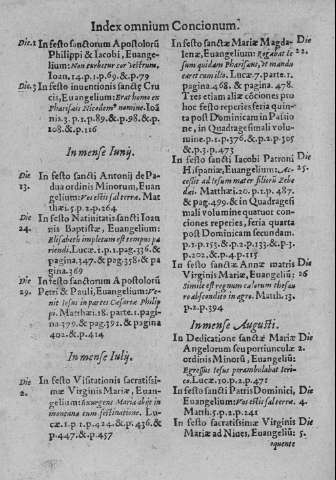 Index omnium Concionum.
Die.1 In festo sanctorum Apostolorũ
Philippi & Iacobi, Euange-
lium: Non turbetur cor vestrum,
Ioan.14.p.1.p.69.&.p.79
Die.3 In festo inuentionis sanctæ Cru
cis, Euangelium: Erat homo ex
Pharisæis Nicodemus nomine. Ioã
nis.3.p.1.p.89.&.p.98.&.p.
108.&.p.116
In mense Iunij.
Die 13. In festo sancti Antonij de Pa-
dua ordinis Minorum, Euan
gelium: Vos estis sal terræ. Mat
thæi.5.p.2.p.264
Die 24. In festo Natiuitatis sancti Ioan
nis Baptistæ, Euangelium:
Elisabeth impletum est tempus pa
riendi, Lucæ.1.p.1.pag.336.&
pagina.347.& pag.358.& pa
gina.369
Die 29. In festo sanctorum Apostolorũ
Petri & Pauli, Euangelium: Ve-
nit Iesus in partes Cæsareæ Philip
pi. Matthæi.18.parte.1.pagi-
na.379.& pag.392.& pagina
402.&.p.414
In mense Iulij.
Die 2. In festo Visitationis sacratissi-
mæ Virginis Mariæ, Euan-
gelium: Exurgens Maria abijt in
montana cum festinatione. Lu-
cæ.1.p.1.p.424.&.p.436.&
p.447.&.p.457
In festo sanctæ Mariæ Magda- Die
lenæ, Euangelium: Rogabat Ie 22.
sum quidam Pharisæus, vt mandu
caret cum illo. Lucæ.7.parte.1.
pagina.468.& pagina.478.
Tres etiam aliæ cõciones pro
hoc festo reperies feria quin-
ta post Dominicam in Passio
ne, in Quadragesimali volu-
mine.p.1.p.376.&.p.2.p.305
&.p.3.p.473
In festo sancti Iacobi Patroni Die
Hispaniæ, Euangelium: Ac- 25.
cessit ad Iesum mater filiorũ Zebe
dæi. Matthæi.20.p.1.p.487.
& pag.499.& in Quadragesi
mali volumine quatuor con-
ciones reperies, feria quarta
post Dominicam secundam.
p.1.p.153.&.p.2.p.133.&.p.3.
p.202.&.p.4.p.115
In festo sanctæ Annæ matris Die
Virginis Mariæ, Euangeliũ: 26
Simile est regnum cælorum thesau
ro abscondito in agro. Matth.13.
p.1.p.394
In mense Augusti.
In Dedicatione sanctæ Mariæ Die
Angelorum seu portiunculæ 2.
ordinis Minorũ, Euangeliũ:
Egressus Iesus perambulabat Ieri-
co. Lucæ.10.p.2.p.471
In festo sancti Patris Dominici, Die
Euangelium: Vos estis sal terræ. 4.
Matth.5.p.2.p.241
In festo sacratissimæ Virginis Die
Mariæ ad Niues, Euangeliũ: 5.
oquente